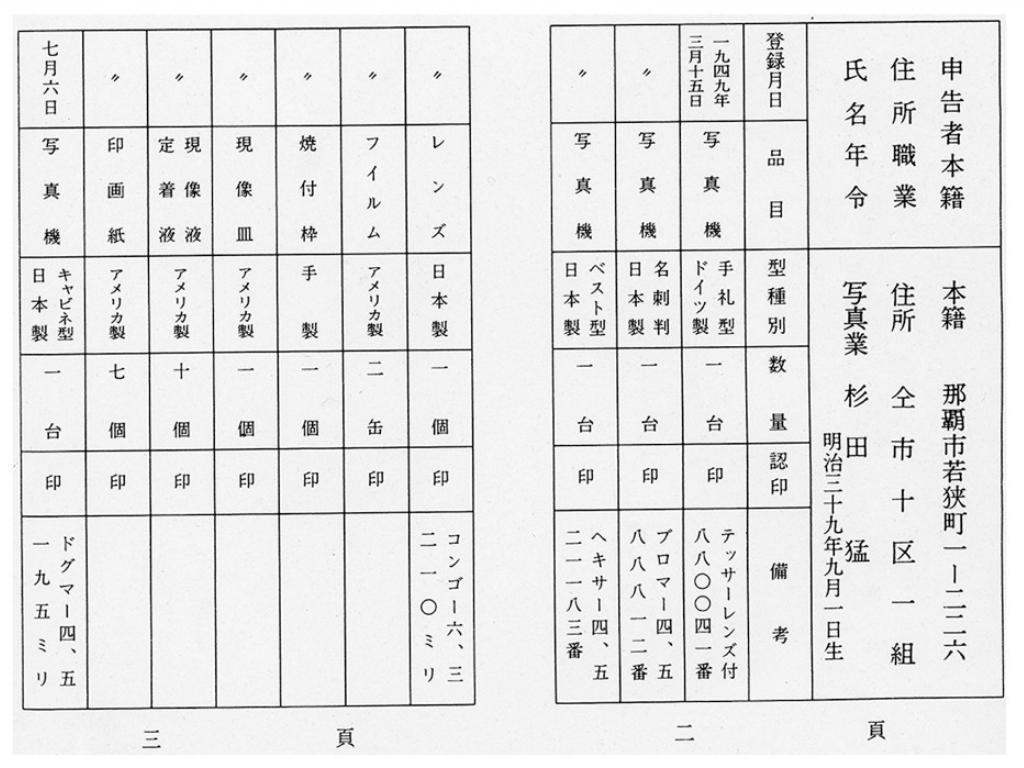 申告者本籍
住所職業
氏名年令
本籍 那覇市若狭町一ー二二六
住所 仝市十区一組
写真業 杉田猛
明治三十九年九月一日生
登録月日
品目
型種別
数量
認印
備考
一九四九年
三月十五日
写真機
手札型
ドイツ製
一台
印
テッサーレンズ付
八八〇〇四一番
〃
写真機
名刺判
日本製
一台
印
ブロマー四、五
八八八一二番
〃
写真機
ベスト型
日本製
一台
印
ヘキサー四、五
二一一八三番
二頁
〃
レンズ
日本製
一個
印
コンゴー六、三
二一〇ミリ
〃
フイルム
アメリカ製
二缶
印
〃
焼付枠
手製
一個
印
〃
現像皿
アメリカ製
一個
印
〃
現像液
定着液
アメリカ製
十個
印
〃
印画紙
アメリカ製
七個
印
七月六日
写真機
キャビネ型
日本製
一台
印
ドグマー四、五
一九五ミリ
三頁